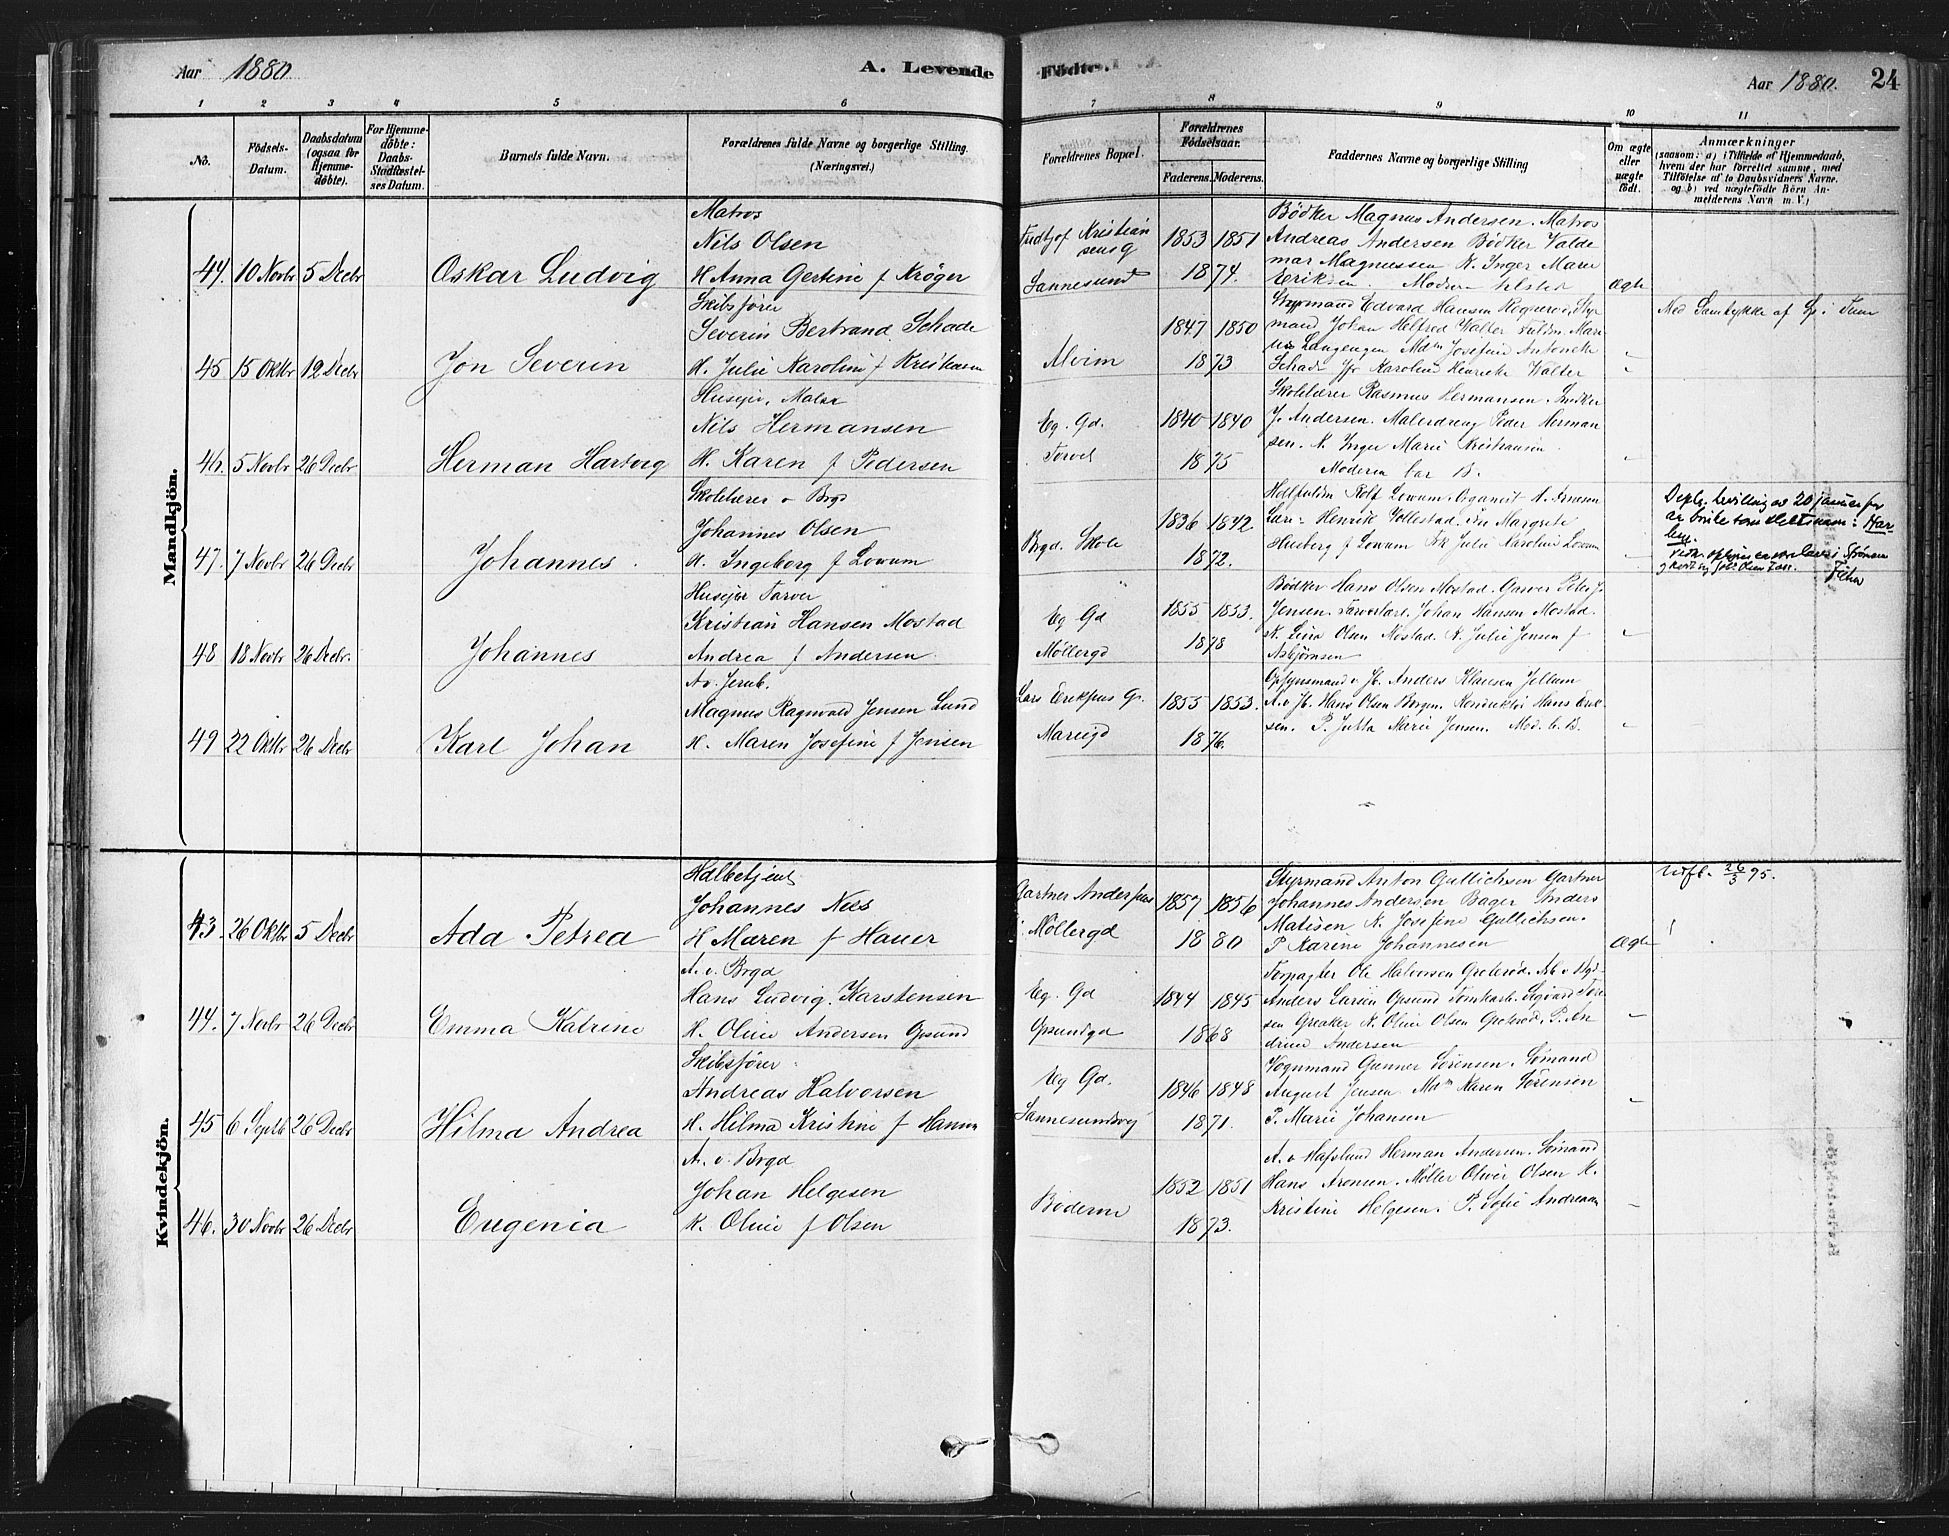 Aar 1880
A. Levende
Födte.
Aar 1880.
24
1 2 3 4 5 6 7 8 9 10 11
No.
Födsels-
Datum.
Daabsdatum
(ogsaa for
Hjemme-
döbte).
For Hjemme-
döbte:
Daabs-
Stadfæstel-
ses Datum.
Barnets fulde Navn.
Forældrenes fulde Navne og borgerlige Stilling.
(Næringsvei.)
Forældrenes Bopæl.
Forældrenes
Födselsaar.
Faderens. Moderens.
Faddernes Navne og borgerlige Stilling
Om ægte
eller
uægte
födt.
Anmærkninger
(saasom: a) i Tilfælde af Hjemmedaab,
hvem der har forrettet samme, med
Tilföielse af to Daabsvidners Navne.
og b) ved uægtefödte Börn An-
melderens Navn m. V.)
Mandkjön.
44. 10 Novbr 5 Decbr
Oskar Ludvig
Matros
Nils Olsen
H. Anna Gertine f Kröger
Kristian
Sannesund
1853 1851
1874.
Bödker Magnus Andersen. Matros
Andreas Andersen Bödker Valde
mar Magnussen K. Inger Marie
Eriksen. Modren
Ægte
45 15 Oktbr 12 Decbr
Jon Severin
Skibsfører
Severin Bertrand Schade
H. Julie Karoline f Kristiansen
Alvim
1847 1850
1873
Styrmand Edvard Hansen Styr
mand Johan Helfred Walter Mari
us Langengen Mdm Josefine Antonette
Schade Karoline Henriette Walter
"
Med Samtykke af Sp. i Tune
46. 5 Novbr 26 Decbr
Herman Hartvig
Husejer, Maler
Nils Hermansen
H. Karen f Pedersen
Eg. Gd.
Torvet
1840 1840
1875
Skolelærer Rasmus Hermansen. Snedker
J. Andersen. Malerdreng Peder Herman
sen. K. Inger Marie Kristiansen
Moderen bar B.
"
47. 7 Novbr 26 Decbr
Johannes
Skolelærer v Brgd
Johannes Olsen
H. Ingeborg f Lowum
Brgd. Skole
1836 1842
1872.
Rolf Lowum. Organist
Henrik Margrete
Husberg f Lowum Julie Karoline Lowum
"
bevilling av 20 januar
48 18 Novbr 26 Decbr.
Johannes
Husejer Farver
Kristian Hansen Mostad
Andrea f Andersen
Eg Gd
Møllergd
1855 1853.
1878
Bødker Hans Olsen Mostad. Garver Peter J.
Jensen. Johan Hansen Mostad.
K. Lina Olsen Mostad K. Julie Jensen f
Asbjørnsen
"
49 22 Oktbr 26 Decbr
Karl Johan
A v. Jernb.
Magnus Ragnvald Jensen Lund
H. Maren Josefine f Jensen
Lars
1855 1853.
1876.
Opsynsmand v Jb. Anders Klausen
A. v Jb. Hans Olsen Bergen. Konduktør Hans Erik
sen. P. Jutta Marie Jensen. Mod. b. B.
"
Kvindekjön.
43. 26 Oktbr 5 Decbr
Ada Petrea
Johannes Nees
H Maren f Hauer
Gartner
Møllergd
1857 1856
1880
Styrmand Anton Gullichsen Gartner
Johannes Andersen Bager Anders
Matisen K. Josefine Gullichsen.
P Karine Johannesen
Ægte
Udfl. 26/3 95.
44. 7 Novbr 26 Decbr
Emma Katrine
A. v. Brgd
Hans Ludvig Karstensen
H. Oline Andersen Opsund
Eg. Gd
Opsundgd
1844 1845
1868
Forpagter Ole Halvorsen Greterød. Arb. v Brgd
Anders Larsen Opsund Tomtearb. Sigvard Tore
sen Greaker K. Oline Olsen Greterød. P. An
drine Andersen
"
45 6 Septbr 26 Decbr
Hilma Andrea
Skibsfører
Andreas Halvorsen
H. Hilma Kristine f Hansen
Eg Gd.
Sannesundsvej
1846 1848
1871.
Vognmand Gunner Sørensen. Sømand
August Jensen Mdm Karen Sørensen
P. Marie Johansen
"
46. 30 Novbr 26 Decbr
Eugenia
A. v. Brgd
Johan Helgesen
K. Oline f Olsen
Boderne
1852 1851
1873.
A. v Hafslund Herman Andersen. Sømand
Hans Aronsen. Møller Oliver Olsen K.
Kristine Helgesen. P. Sofie Andreasen
"